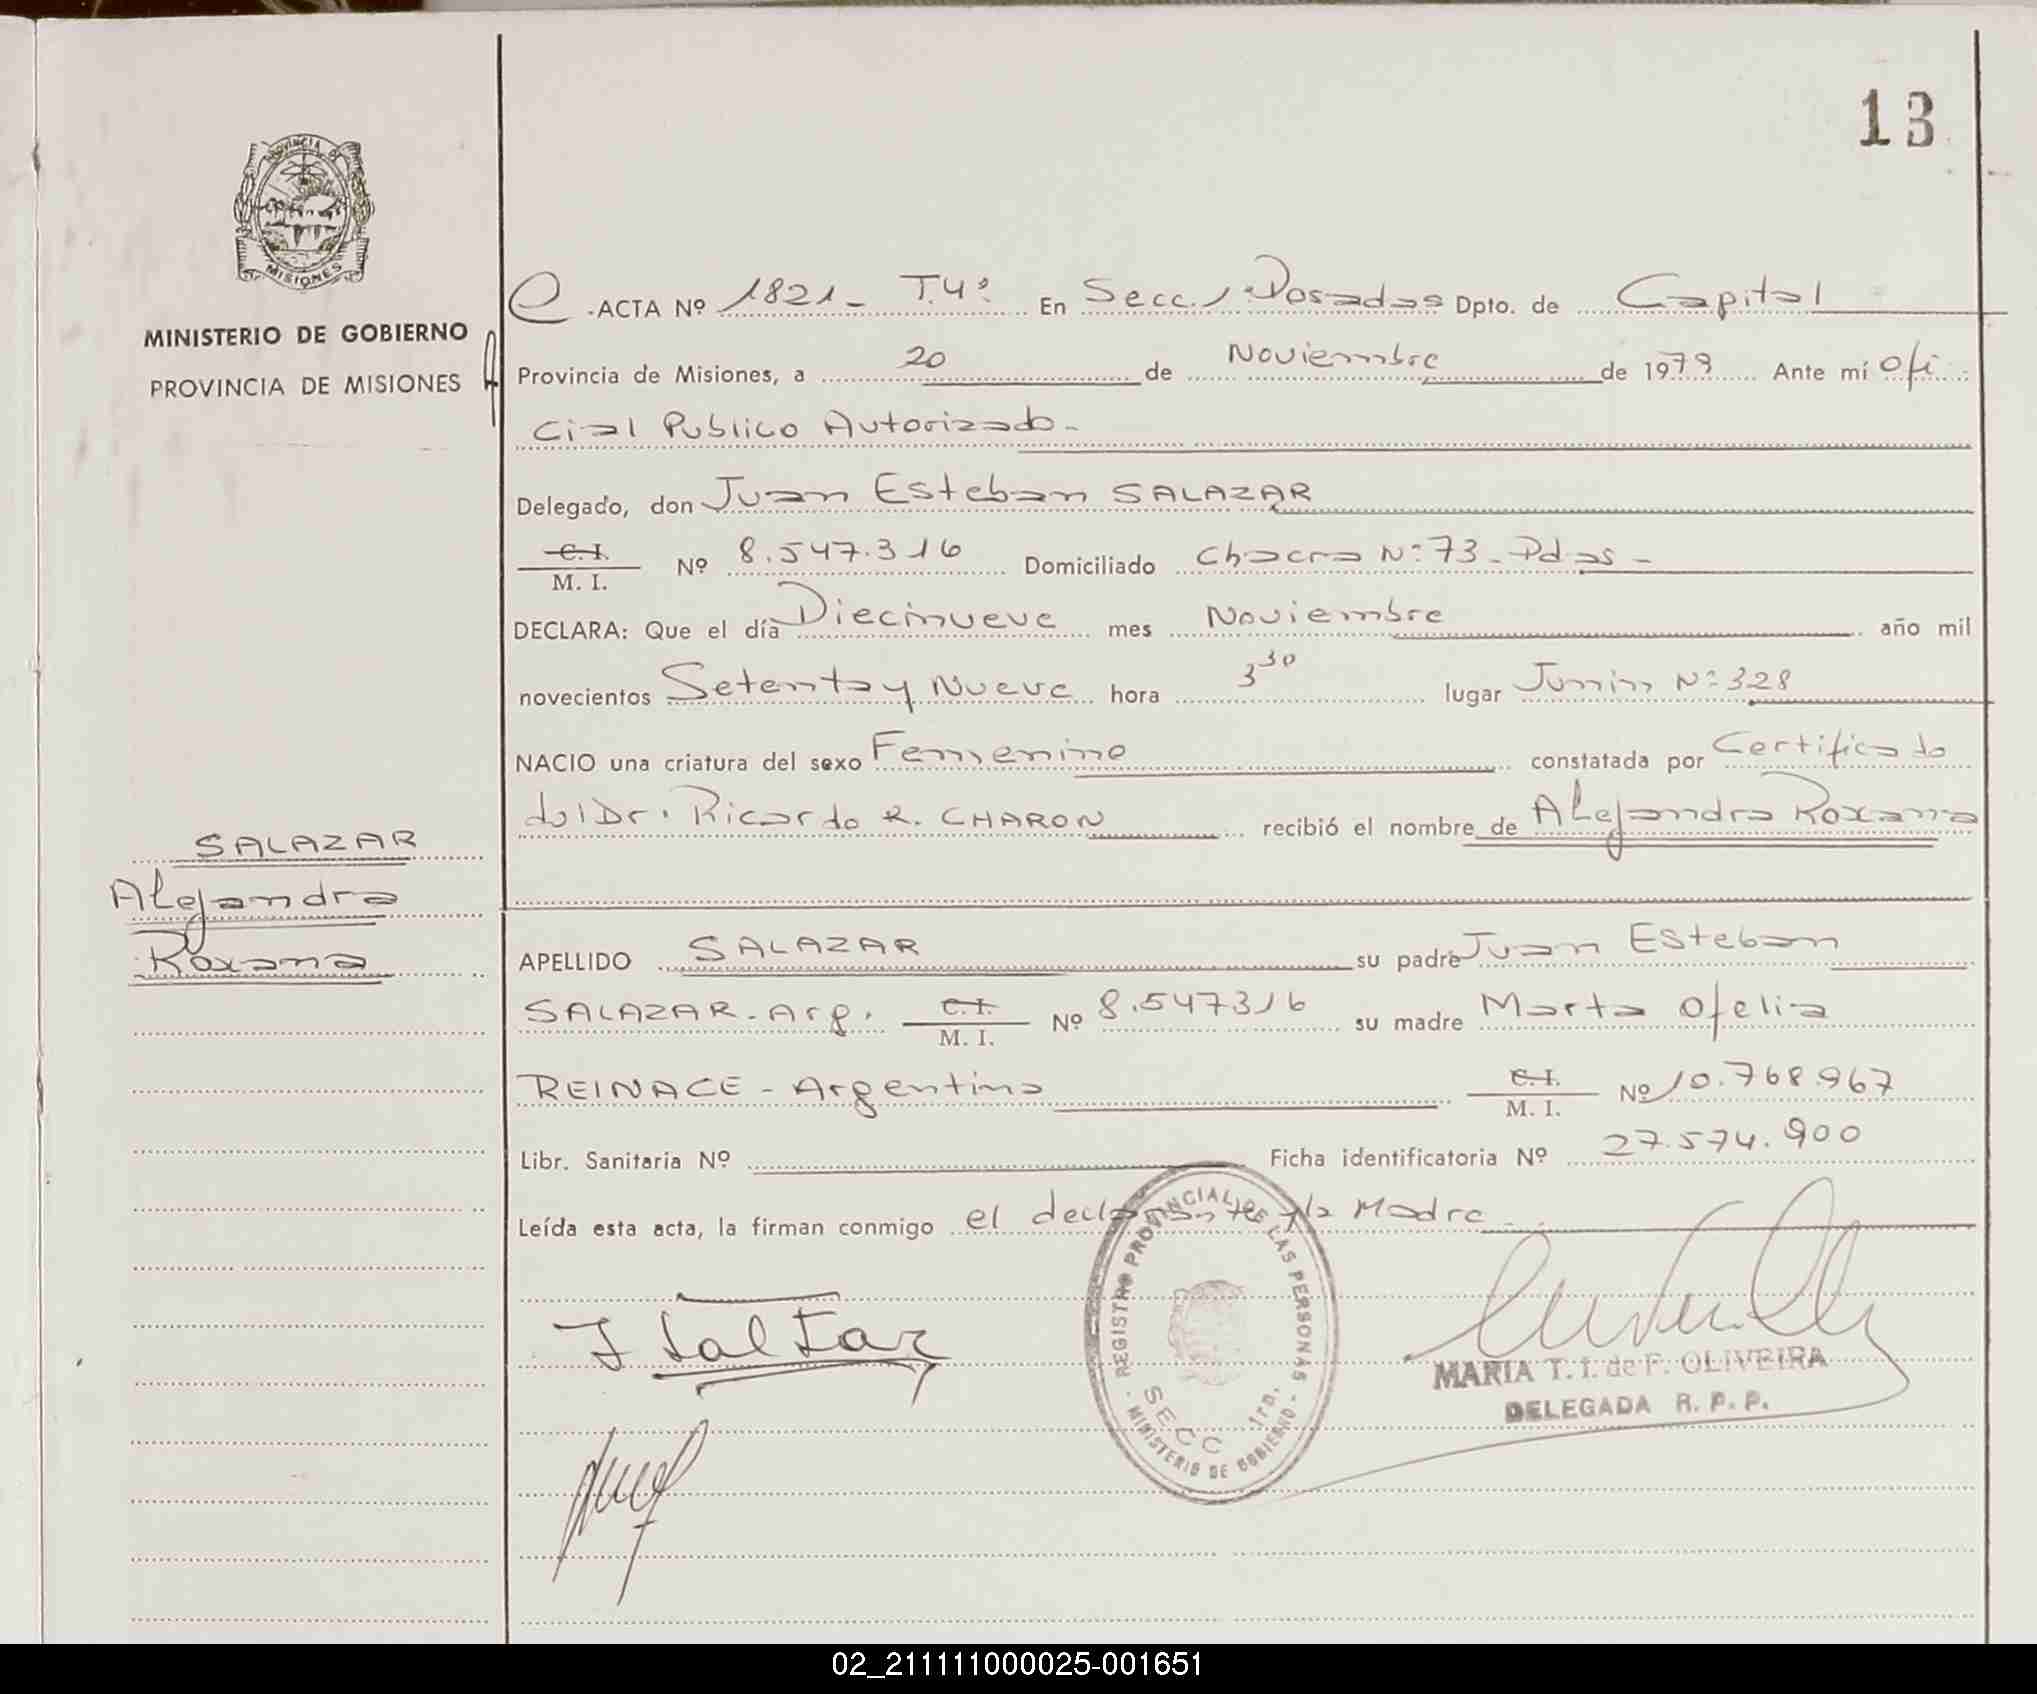 13
PROVINCIA DE
MISIONES
MINISTERIO DE GOBIERNO
PROVINCIA DE MISIONES
ACTA Nº 1821 - T.4º En Secc. 1ª Posadas Dpto. de Capital
Provincia de Misiones, a 20 de Noviembre de 1979 Ante mí Ofi
cial Publico Autorizado -
Delegado, don Juan Esteban SALAZAR
C. I.
M. I. Nº 8.547.316 Domiciliado Chacra Nº 73 - Pdas -
DECLARA: Que el día Diecinueve mes Noviembre año mil
novecientos Setenta y Nueve hora 3 30 lugar Junin Nº 328
NACIO una criatura del sexo Femenino constatada por Certificado
del Dr. Ricardo R. CHARON recibió el nombre de Alejandra Roxana
SALAZAR
Alejandra
Roxana
APELLIDO SALAZAR su padre Juan Esteban
SALAZAR - Arg. C. I.
M. I. Nº 8.547316 su madre Marta Ofelia
REINACE - Argentina C. I.
M. I. Nº 10.768.967
Libr. Sanitaria Nº Ficha identificatoria Nº 27.574.900
Leída esta acta, la firman conmigo el declarante y la Madre
REGISTRO PROVINCIAL DE LAS PERSONAS
SECC 1ra.
- MINISTERIO DE GOBIERNO -
J Salazar
MARIA T. I. de F. OLIVEIRA
DELEGADA R. P. P.
02_211111000025-001651